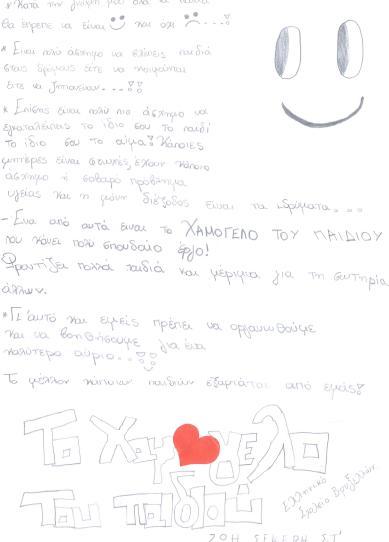 * Κατά την γνώμη μου όλα τα παιδιά
θα έπρεπε να είναι 🙂 και όχι ☹...!
* Είναι πολύ άσχημο να βλέπεις παιδιά
στους δρόμους είτε να κοιμούνται
είτε να ζητιανεύουν...!!
* Επίσης είναι πολύ πιο άσχημο να
εγκαταλείπεις το ίδιο σου το παιδί
το ίδιο σου το αίμα! Κάποιες
μητέρες είναι φτωχές, έχουν κάποιο
άσχημο ή σοβαρό πρόβλημα
υγείας και η μόνη διέξοδος είναι τα ιδρύματα...
- Ένα από αυτά είναι το ΧΑΜΟΓΕΛΟ ΤΟΥ ΠΑΙΔΙΟΥ
που κάνει πολύ σπουδαίο έργο!
Φροντίζει πολλά παιδιά και μεριμνά για τη σωτηρία
άλλων.
* Γι'αυτό και εμείς πρέπει να οργανωθούμε
και να βοηθήσουμε για ένα
καλύτερο αύριο..!!
Το μέλλον κάποιων παιδιών εξαρτάται από εμάς!
Το Χαμόγελο
Του παιδιού
Ελληνικό
Σχολείο Βρυξελλών
ΖΩΗ ΣΤ'